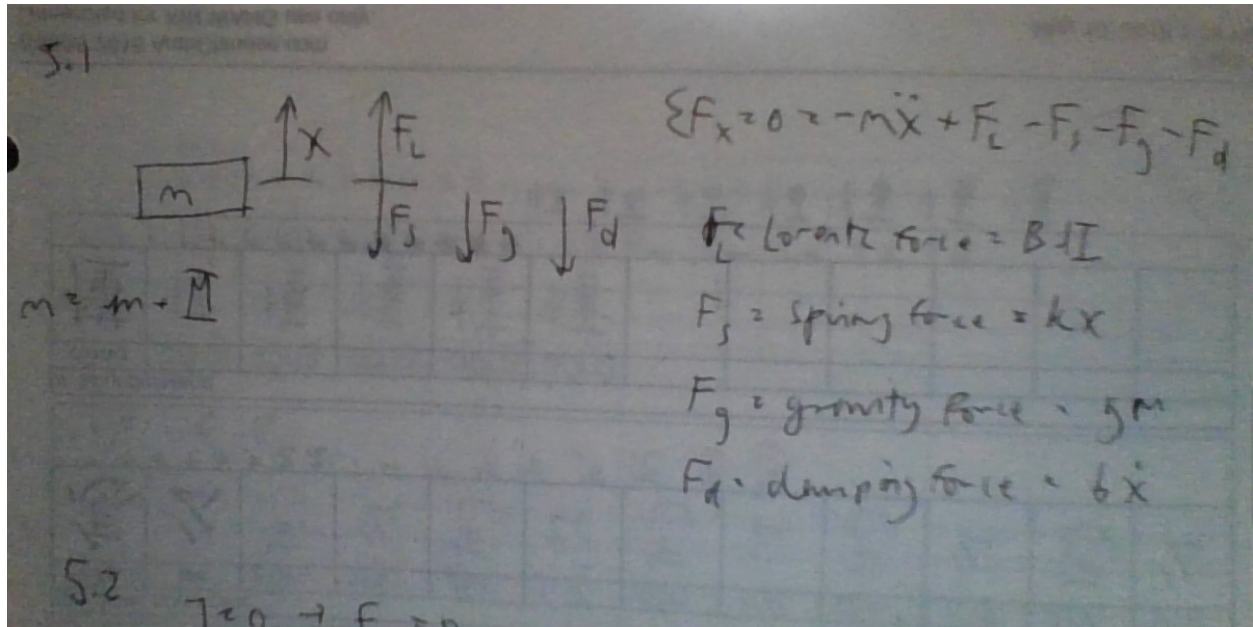 5.1
ΣF_x = 0 = -mẍ + F_L - F_s - F_g - F_d
x F_L
m F_s F_g F_d
F_L = Lorentz force = B l I
m = m + M
F_s = spring force = kx
F_g = gravity force = gm
F_d = damping force = bẋ
5.2
I=0 → F = 0